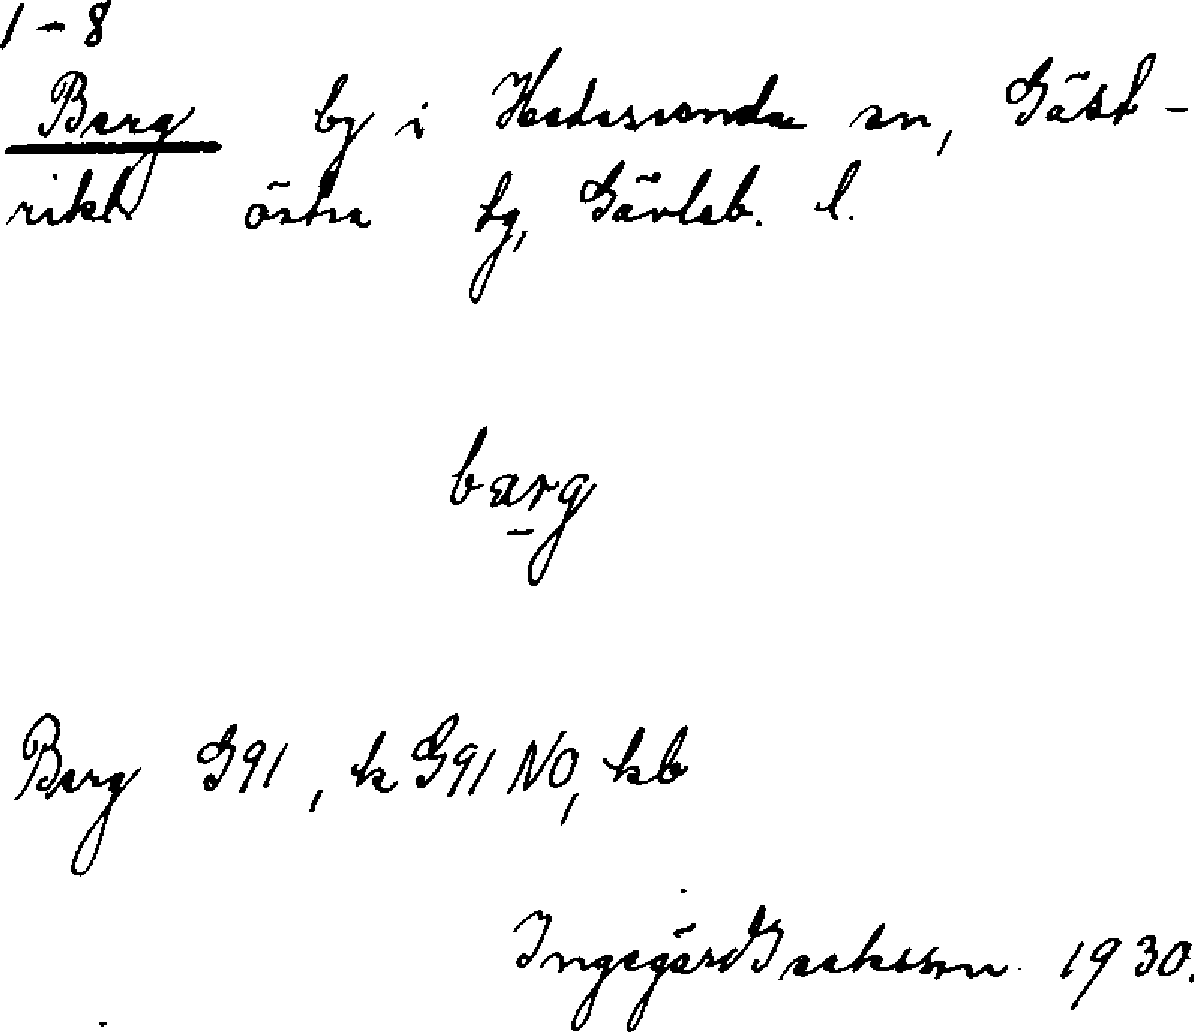 1-8
Berg by i Hedesunda sn, Gäst-
rikl östra tg, Gävleb. l.
barg
Berg G91, k G91 NO, kb
Ingegärd Isaksson 1930.